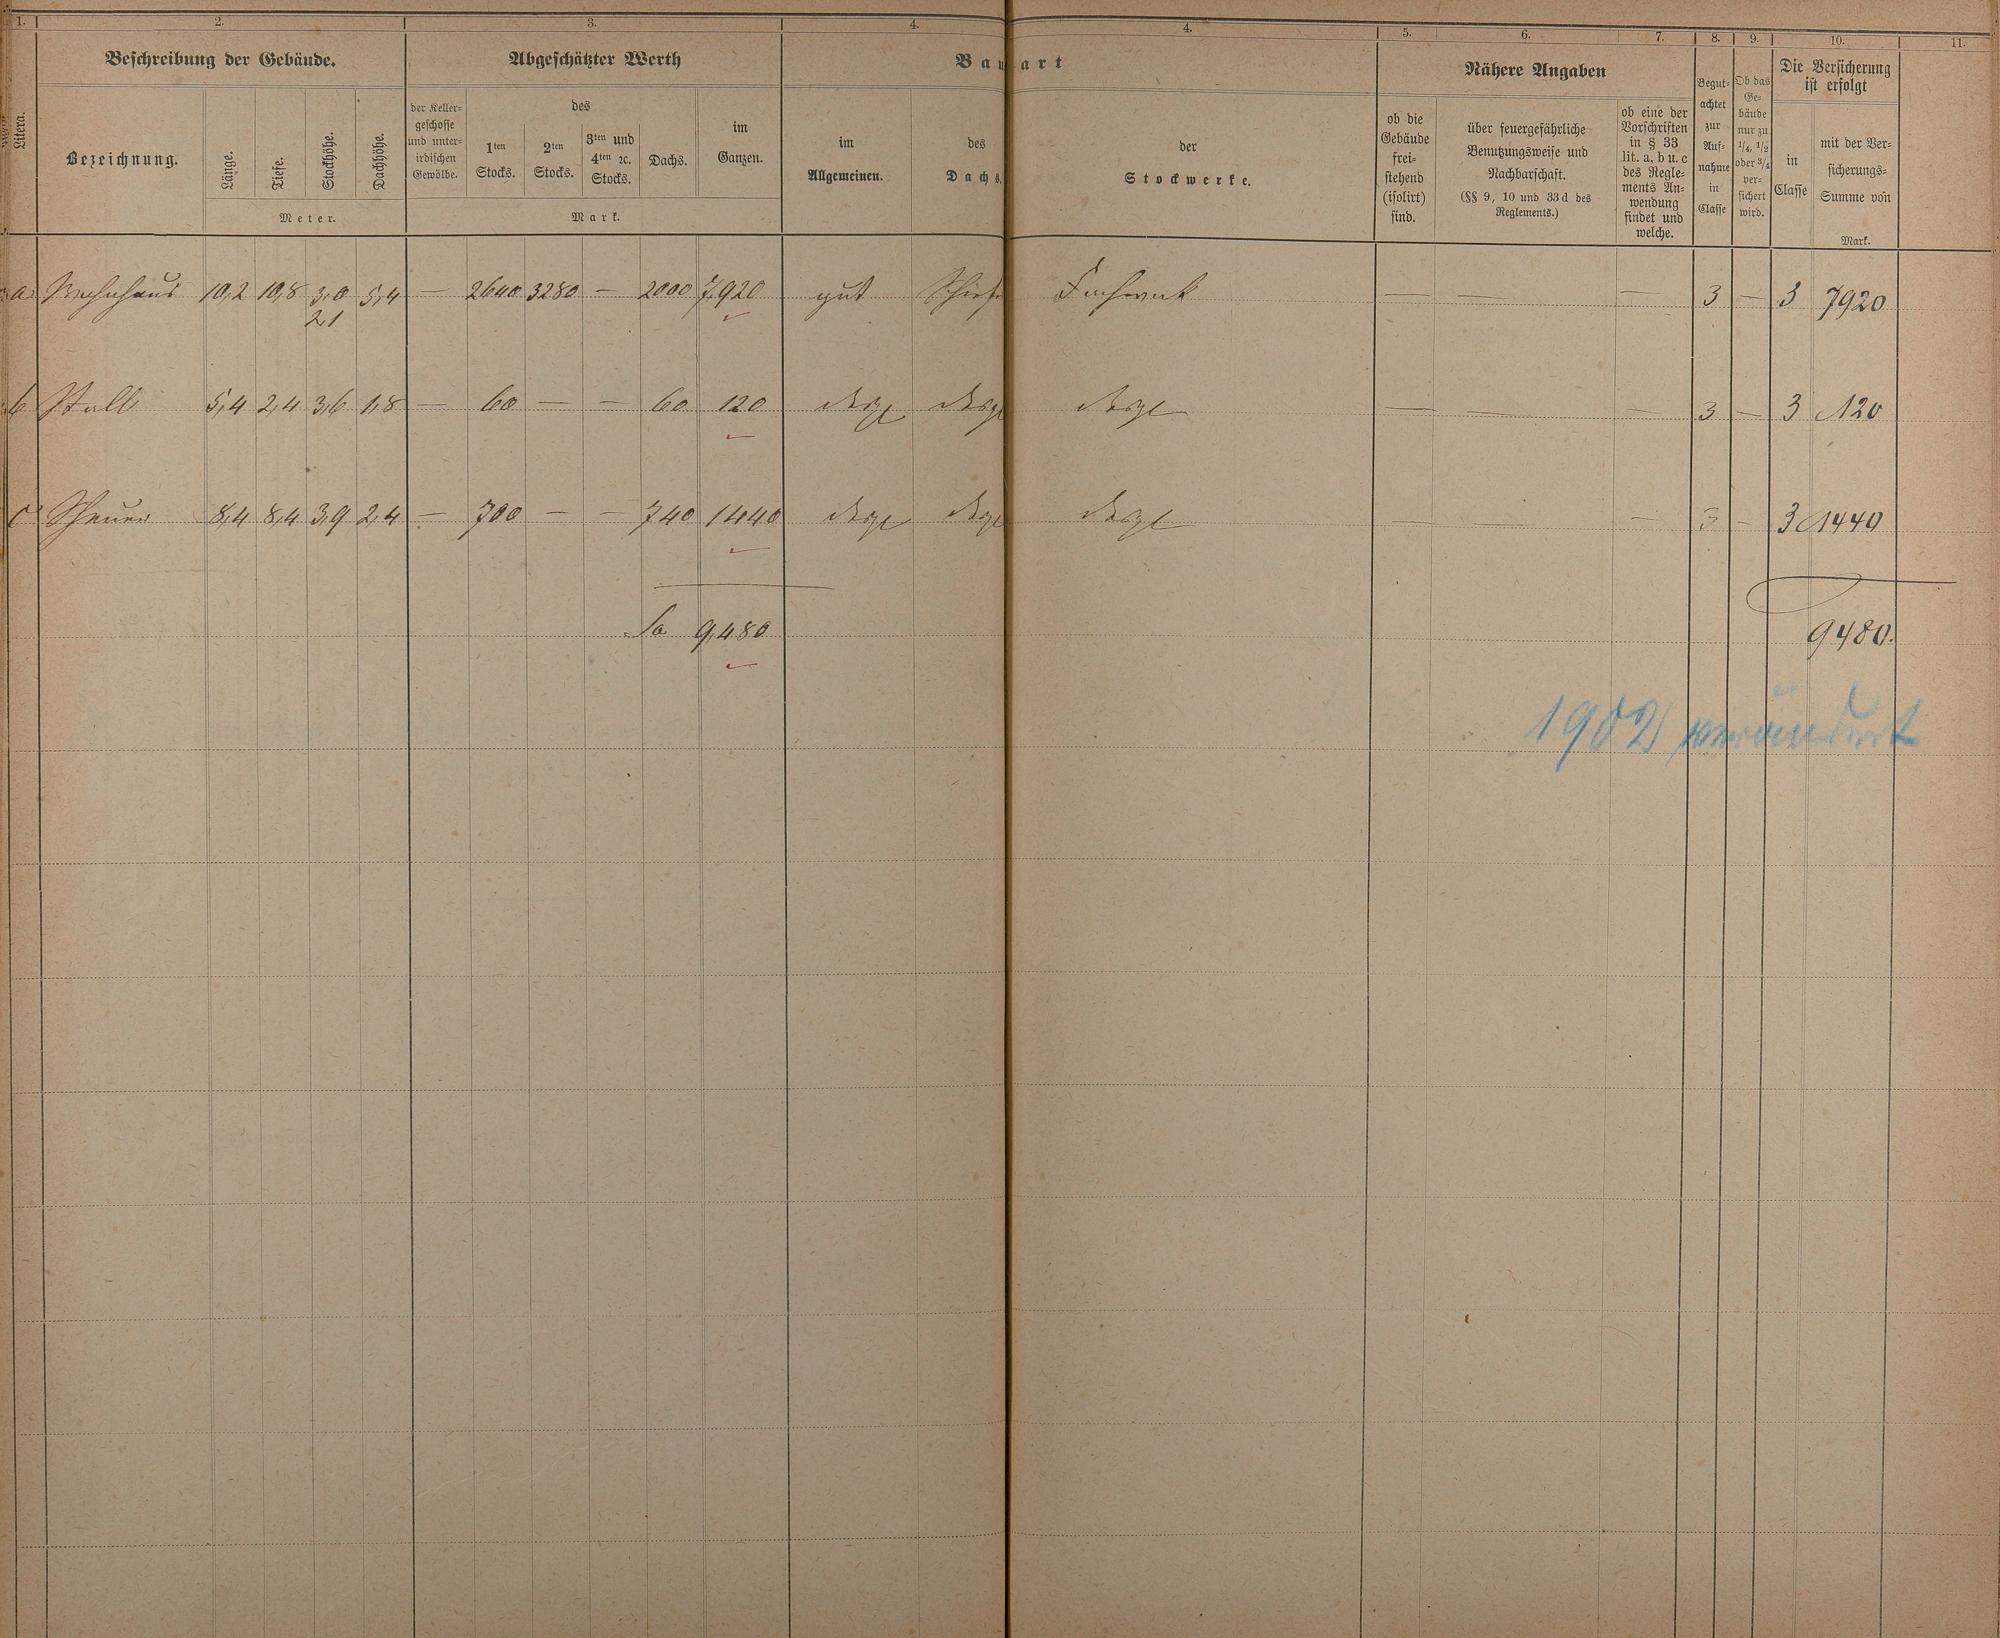 1. 2. 3. 4. 4. 5. 6. 7. 8. 9. 10. 11.
Beschreibung der Gebäude.
Abgeschätzter Werth
Bauart
Nähere Angaben
Die Versicherung
ist erfolgt
Litera.
Bezeichnung.
Länge.
Tiefe.
Stockhöhe.
Dachhöhe.
Meter.
der Keller-
geschosse
und unter-
irdischen
Gewölbe.
des
1ten
Stocks.
2ten
Stocks.
3ten und
4ten ꝛc.
Stocks.
Dachs.
im
Ganzen.
Mark.
im
Allgemeinen.
des
Dachs.
der
Stockwerke.
ob die
Gebäude
frei-
stehend
(isolirt)
sind.
über feuergefährliche
Benutzungsweise und
Nachbarschaft.
(§§ 9, 10 und 33d des
Reglements.)
ob eine der
Vorschriften
in § 33
lit. a, b u. c
des Regle-
ments An-
wendung
findet und
welche.
Begut-
achtet
zur
Auf-
nahme
in
Classe
Ob das
Ge-
bäude
nur zu
1/4, 1/2
oder 3/4
ver-
sichert
wird.
in
Classe
mit der Ver-
sicherungs-
Summe von
Mark.
a Wohnhaus 10,2 10,8 3,0 5,4 — 2640 3280 — 2000 7,920 gut Schief Fachwerk — — — 3 — 3 7920
2,1
b Stall 5,4 2,4 3,6 1,8 — 60 — — 60 120 desgl desgl desgl — — — 3 — 3 120
c Scheuer 8,4 8,4 3,9 2,4 — 700 — — 740 1440 desgl desgl desgl — — — 3 — 3 1440
Sa 9,480 9480.
1902 verändert